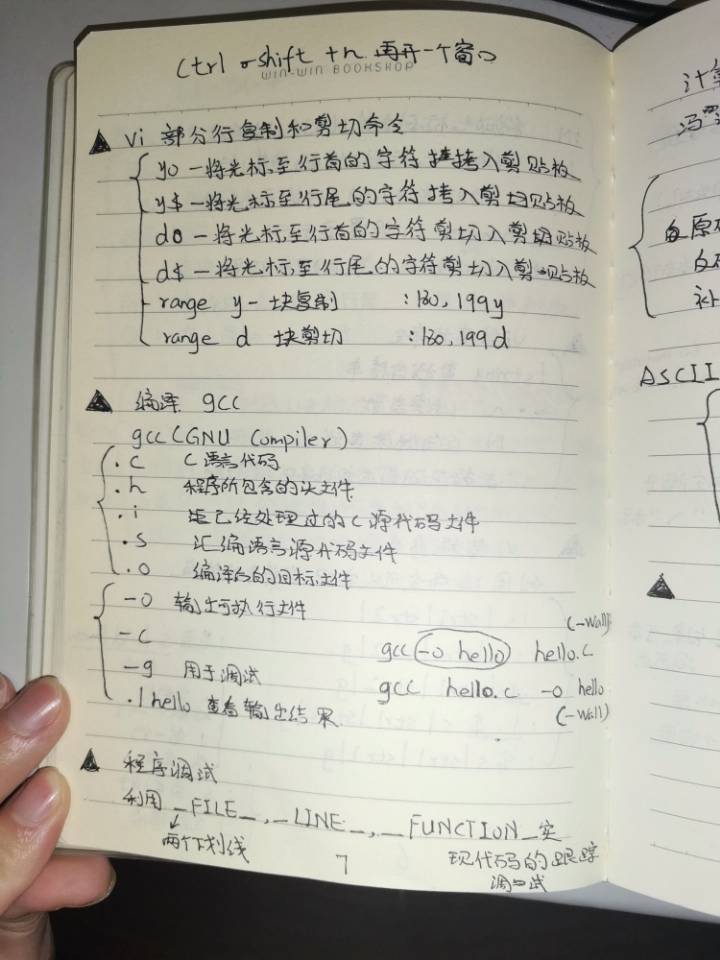 Ctrl + shift + n 再开一个窗口
WIN-WIN BOOKSHOP
▲ vi 部分行复制和剪切命令
y0 — 将光标至行首的字符拷入剪贴板
y$ — 将光标至行尾的字符拷入剪切贴板
d0 — 将光标至行首的字符剪切入剪切贴板
d$ — 将光标至行尾的字符剪切入剪切贴板
range y - 块复制 :180,199y
range d 块剪切 :180,199d
▲ 编译 gcc
gcc (GNU Compiler)
.c C语言代码
.h 程序所包含的头文件
.i 是已经处理过的C源代码文件
.s 汇编语言源代码文件
.o 编译后的目标文件
-o 输出可执行文件
(-wall)
-c gcc -o hello hello.c
-g 用于调试 gcc hello.c -o hello
./hello 查看输出结果 (-wall)
▲ 程序调试
利用 __FILE__, __LINE__, __FUNCTION__ 实
两个下划线 现代码的跟踪
调试
7
计
冯
原
补
ASCII
▲